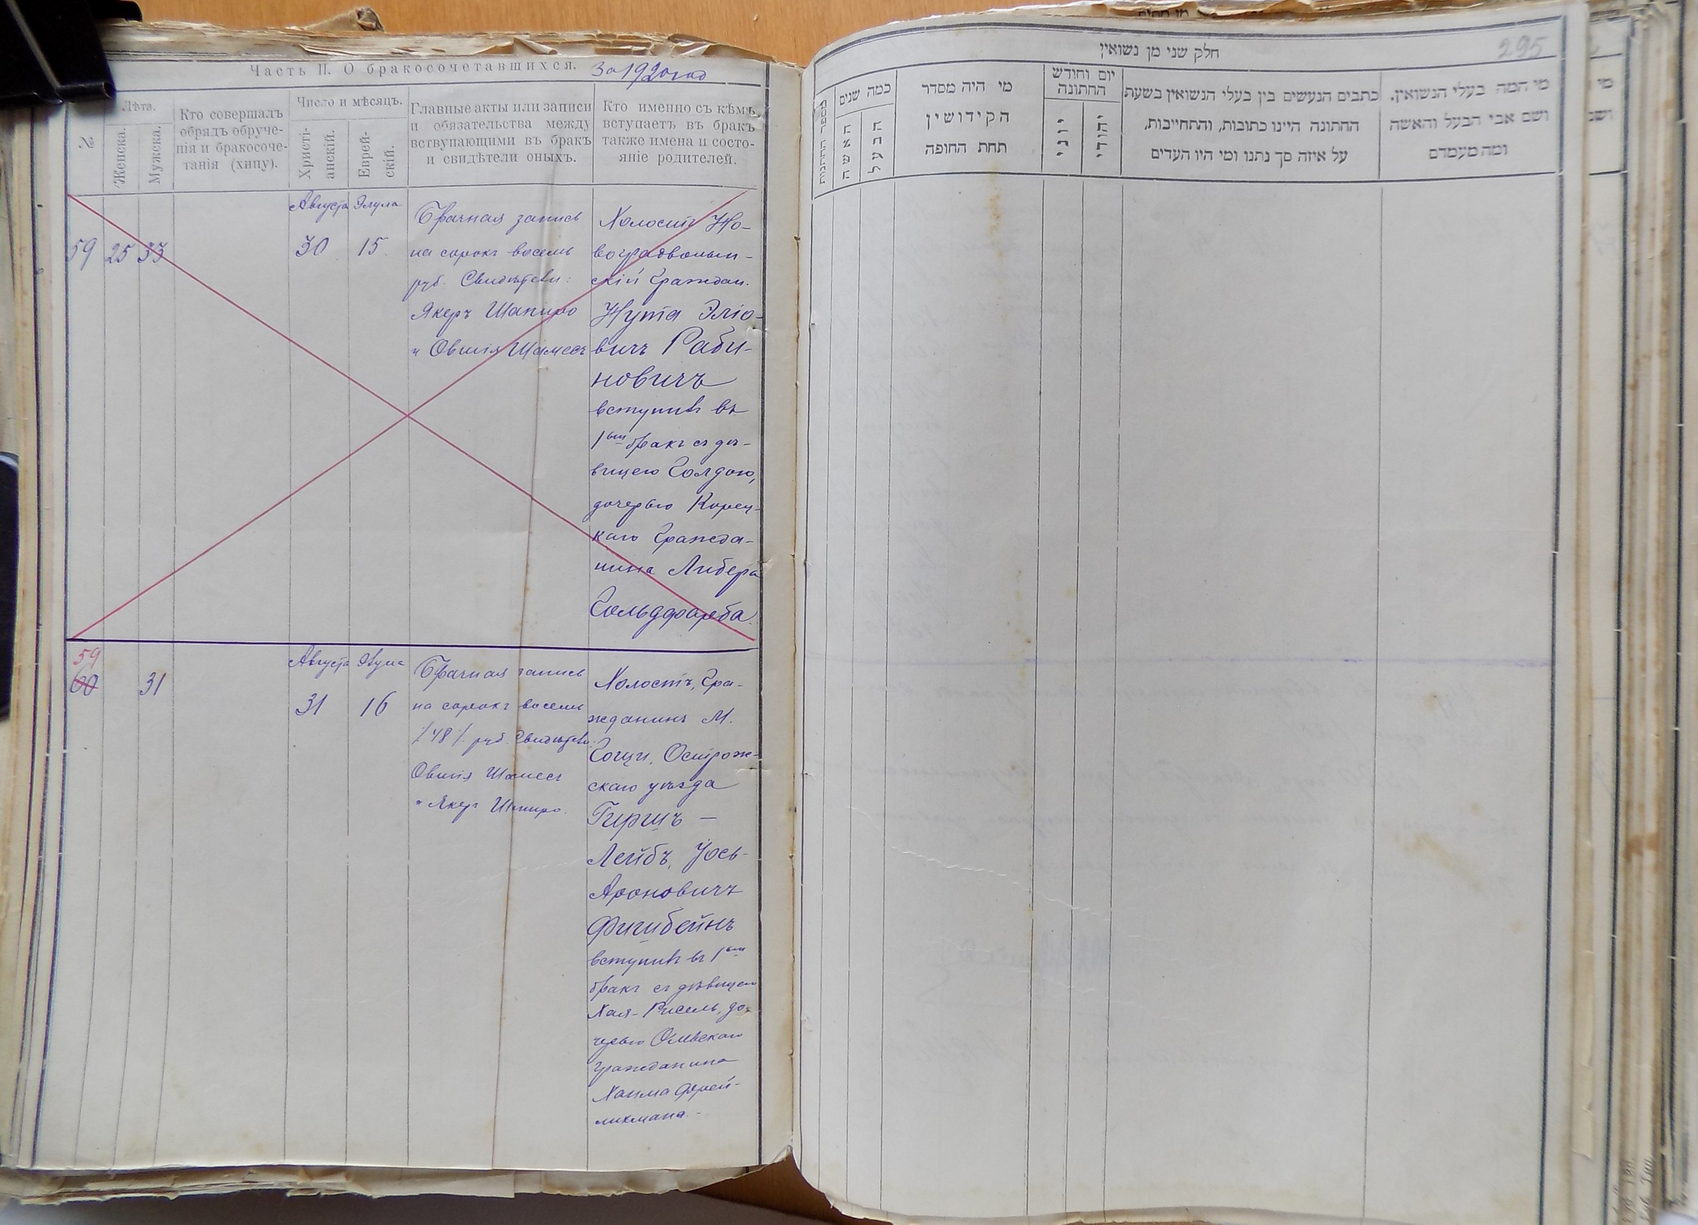 Часть II. О бракосочетавшихся. За 1920 год
№
Лѣта.
Женска.
Мужска.
Кто совершалъ
обрядъ обруче-
нія и бракосоче-
танія (хипу).
Число и мѣсяцъ.
Христі-
анскій.
Еврей-
скій.
Главные акты или записи
и обязательства между
вступающими въ бракъ
и свидѣтели оныхъ.
Кто именно съ кѣмъ
вступаетъ въ бракъ
также имена и состо-
яніе родителей.
59 25 33
Августа
30
Элула
15
Брачная запись
на сорокъ восемь
руб. Свидѣтели:
Якеръ Шапиро
и Овшія Шамесъ
Холостъ Но-
воградволын-
скій Граждан.
Нута Эліо-
вичъ Раби-
новичъ
вступилъ въ
1ый бракъ съ дѣ-
вицею Голдою,
дочерью Корец-
каго Гражда-
нина Либера
Гольдфарба.
59
60 31
Августа
31
Элула
16
Брачная запись
на сорокъ восемь
/48/ руб. Свидѣтели
Овшія Шамесъ
и Якеръ Шапиро.
Холостъ, Гра-
жданинъ М.
Гощи, Острож-
скаго уѣзда
Гиршъ —
Лейбъ, Іось-
Ароновичъ
вступилъ въ 1ый
бракъ съ дѣвицею
Хая- Рисель, до-
черью Олевскаго
гражданина
Хаима Фрей-
лихмана. -
חלק שני מן נשואין
295
מספר החתונות
כמה שנים
האשה
הבעל
מי היה מסדר
הקידושין
תחת החופה
יום וחודש
החתונה
יוני
יהודי
כתבים הנעשים בין בעלי הנשואין בשעת
החתונה היינו כתובות, והתחייבות,
על איזה סך נתנו ומי היו העדים
מי המה בעלי הנשואין,
ושם אבי הבעל והאשה
ומה מעמדם